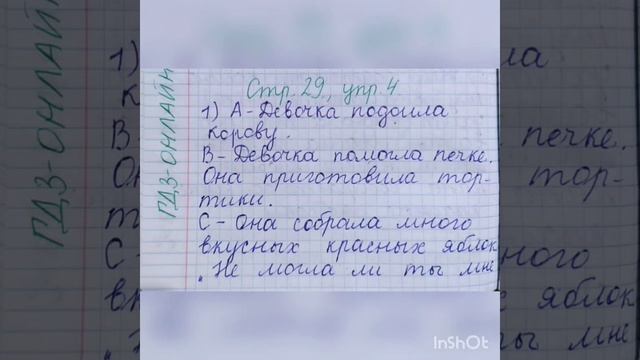 ГДЗ-ОНЛАЙН
Стр. 29, упр. 4
1) А - Девочка подоила
корову.
В - Девочка помогла печке.
Она приготовила тор-
тики.
С - Она собрала много
вкусных красных яблок
„Не могла ли ты мне
InShOt